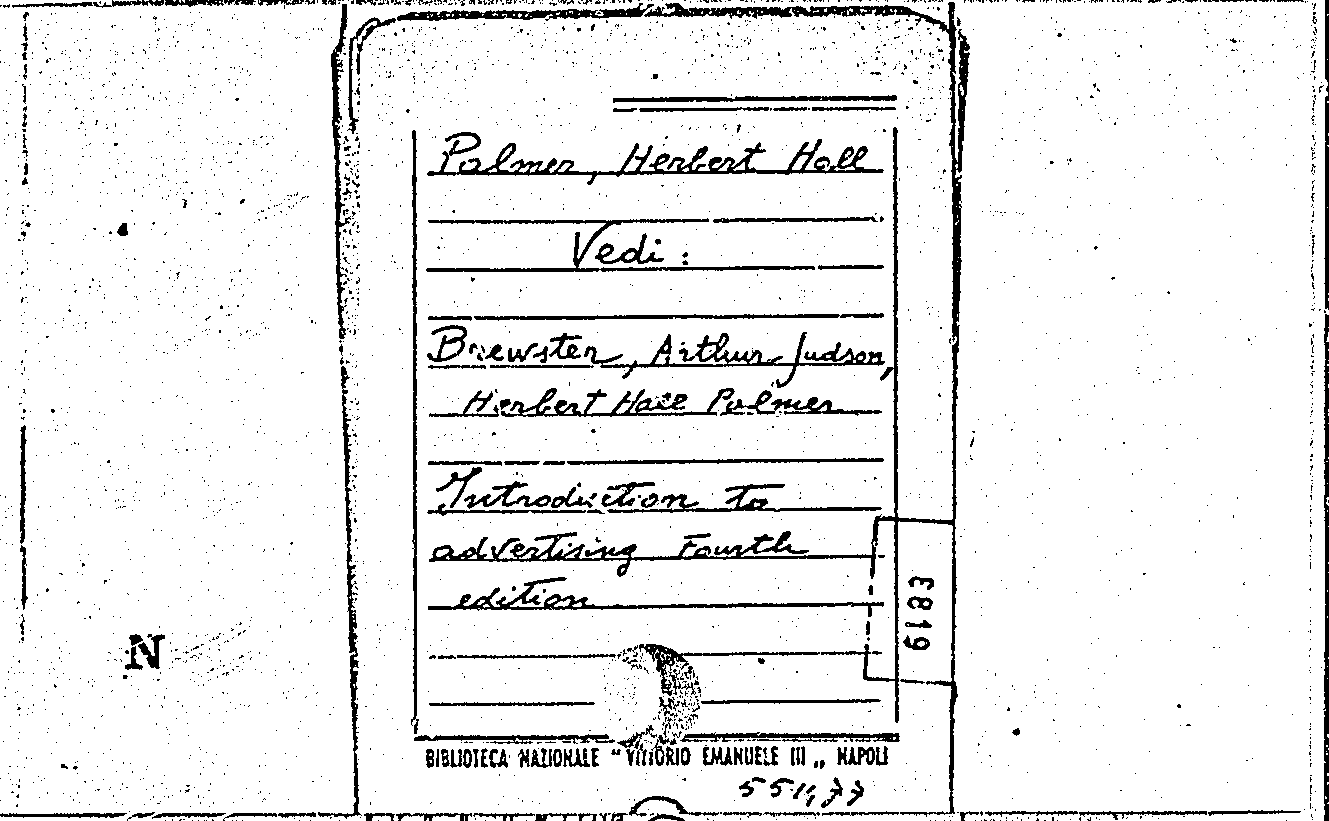 Palmer, Herbert Hall
Vedi :
Brewster, Arthur Judson,
Herbert Hall Palmer
Introduction to
advertising Fourth
edition
E819
N
BIBLIOTECA NAZIONALE " VITTORIO EMANUELE III „ NAPOLI